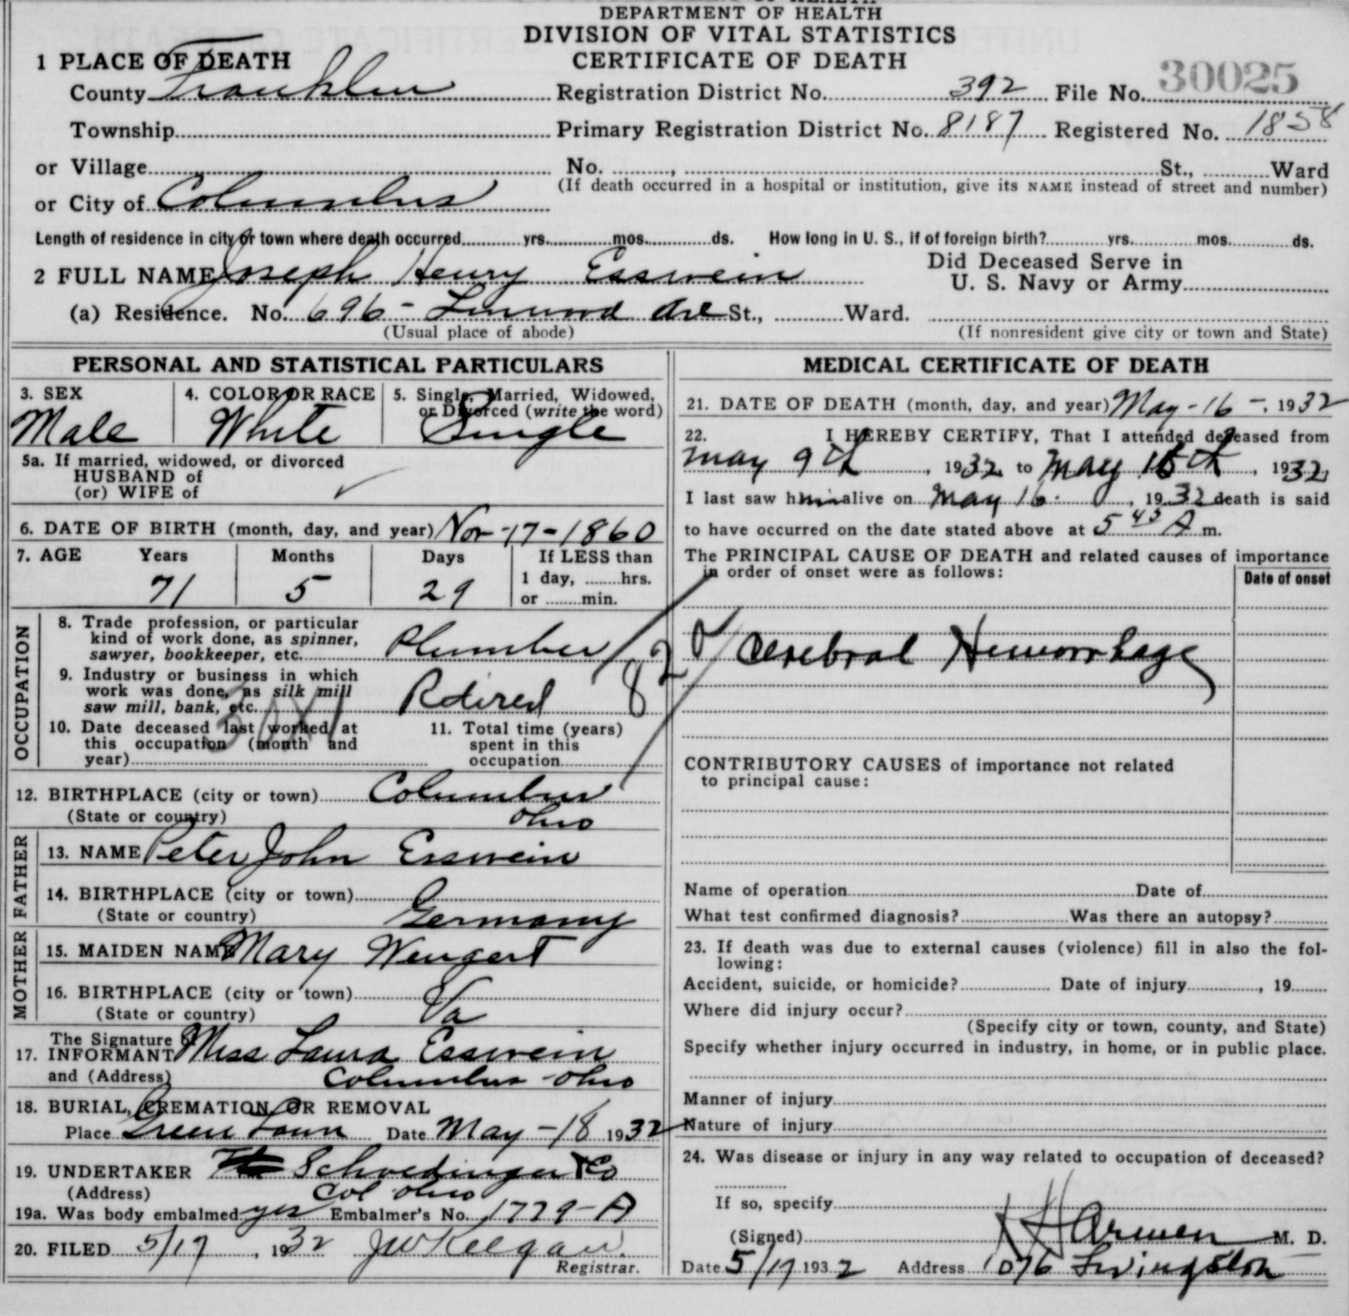 DEPARTMENT OF HEALTH
DIVISION OF VITAL STATISTICS
CERTIFICATE OF DEATH
1 PLACE OF DEATH
County Franklin Registration District No. 392 File No. 30025
Township Primary Registration District No. 8187 Registered No. 1858
or Village No. , St., Ward
(If death occurred in a hospital or institution, give its NAME instead of street and number)
or City of Columbus
Length of residence in city or town where death occurred yrs. mos. ds. How long in U. S., if of foreign birth? yrs. mos. ds.
2 FULL NAME Joseph Henry Esswein Did Deceased Serve in
U. S. Navy or Army
(a) Residence. No. 696 - Linwood Ave St., Ward.
(Usual place of abode) (If nonresident give city or town and State)
PERSONAL AND STATISTICAL PARTICULARS
3. SEX 4. COLOR OR RACE 5. Single, Married, Widowed,
or Divorced (write the word)
Male White Single
5a. If married, widowed, or divorced
HUSBAND of
(or) WIFE of
6. DATE OF BIRTH (month, day, and year) Nov-17-1860
7. AGE Years Months Days If LESS than
1 day, hrs.
71 5 29 or min.
OCCUPATION
8. Trade profession, or particular
kind of work done, as spinner,
sawyer, bookkeeper, etc. Plumber
9. Industry or business in which
work was done, as silk mill
saw mill, bank, etc. Retired
82
10. Date deceased last worked at
this occupation (month and
year)
11. Total time (years)
spent in this
occupation
12. BIRTHPLACE (city or town) Columbus
(State or country) Ohio
FATHER
13. NAME Peter John Esswein
14. BIRTHPLACE (city or town)
(State or country) Germany
MOTHER
15. MAIDEN NAME Mary Wengert
16. BIRTHPLACE (city or town)
(State or country) Va
The Signature of
17. INFORMANT Miss Laura Esswein
and (Address) Columbus Ohio
18. BURIAL, CREMATION, OR REMOVAL
Place Green Lawn Date May-18 1932
19. UNDERTAKER Schoedinger & Co
(Address) Col Ohio
19a. Was body embalmed yes Embalmer's No. 1729-A
20. FILED 5/17, 1932 JW Keegan
Registrar.
MEDICAL CERTIFICATE OF DEATH
21. DATE OF DEATH (month, day, and year) May-16-, 1932
22. I HEREBY CERTIFY, That I attended deceased from
May 9th, 1932, to May 16th, 1932,
I last saw him alive on May 16, 1932 death is said
to have occurred on the date stated above at 5 45 A m.
The PRINCIPAL CAUSE OF DEATH and related causes of importance
in order of onset were as follows:
Date of onset
Cerebral Hemorrhage
CONTRIBUTORY CAUSES of importance not related
to principal cause:
Name of operation Date of
What test confirmed diagnosis? Was there an autopsy?
23. If death was due to external causes (violence) fill in also the fol-
lowing:
Accident, suicide, or homicide? Date of injury , 19
Where did injury occur?
(Specify city or town, county, and State)
Specify whether injury occurred in industry, in home, or in public place.
Manner of injury
Nature of injury
24. Was disease or injury in any way related to occupation of deceased?
If so, specify
(Signed) M. D.
Date 5/17 1932 Address 1076 Livingston